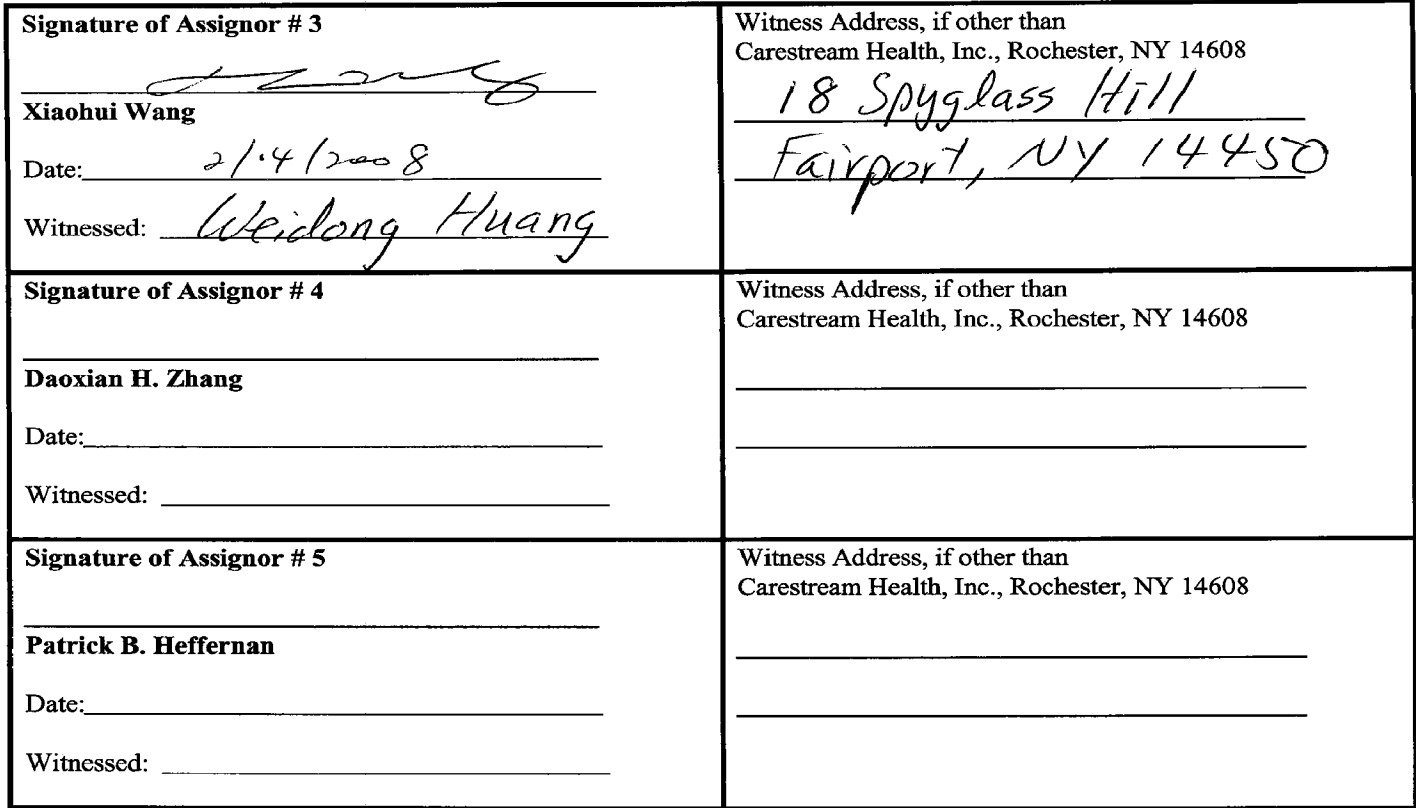 Signature of Assignor # 3
Xiaohui Wang
Date: 2/4/2008
Witnessed: Weidong Huang
Witness Address, if other than
Carestream Health, Inc., Rochester, NY 14608
18 Spyglass Hill
Fairport, NY 14450
Signature of Assignor # 4
Daoxian H. Zhang
Date:
Witnessed:
Witness Address, if other than
Carestream Health, Inc., Rochester, NY 14608
Signature of Assignor # 5
Patrick B. Heffernan
Date:
Witnessed:
Witness Address, if other than
Carestream Health, Inc., Rochester, NY 14608